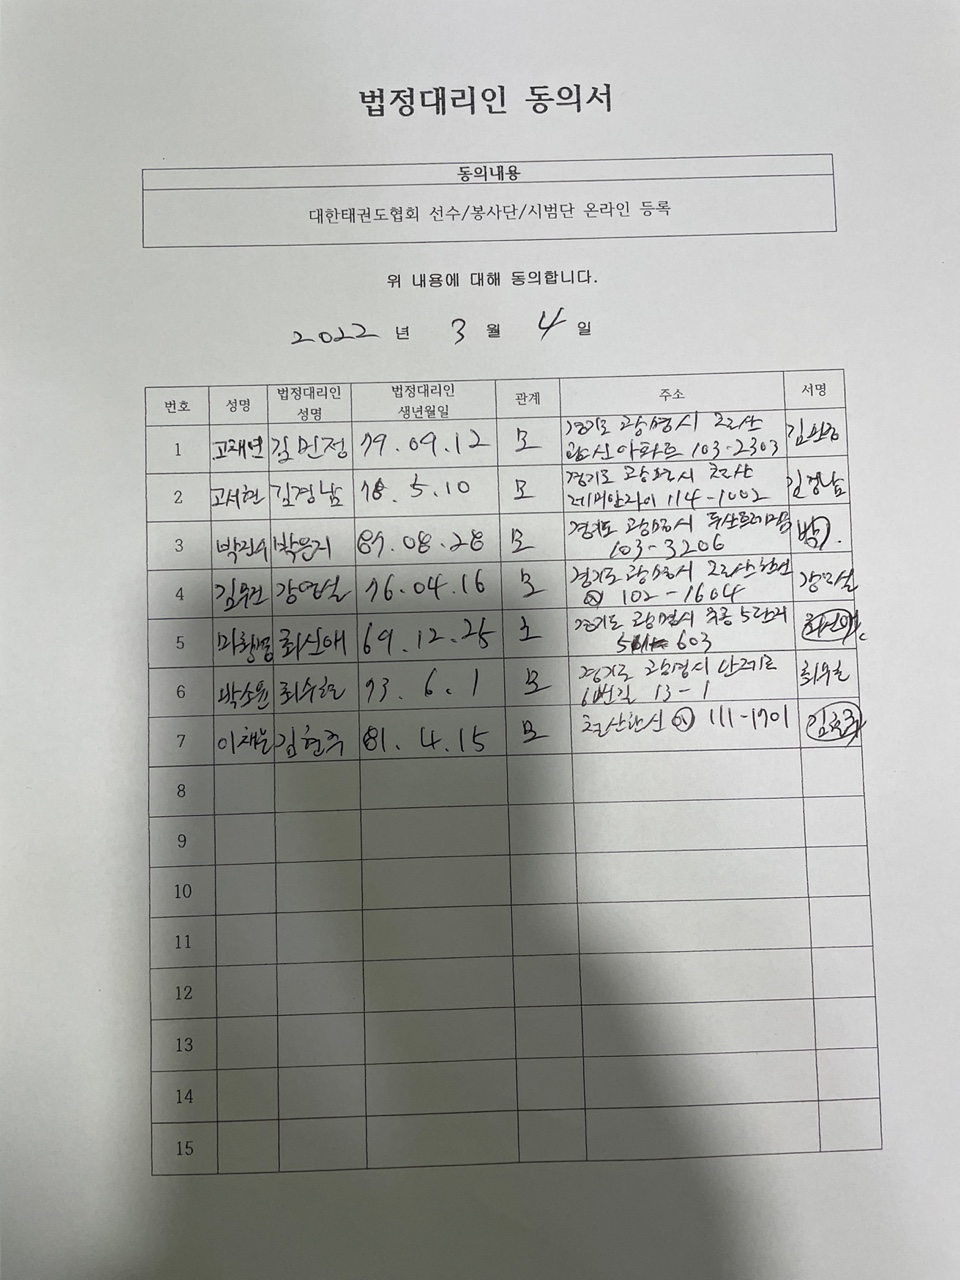 법정대리인 동의서
동의내용
대한태권도협회 선수/봉사단/시범단 온라인 등록
위 내용에 대해 동의합니다.
2022 년 3 월 4 일
번호 성명 법정대리인 성명 법정대리인 생년월일 관계 주소 서명
1 고재연 김민정 79.09.12 모 경기도 광명시 철산
아파트 103-2303
2 고서현 김경남 78.5.10 모 경기도 광명시 철산
래미안자이 114-1002 김경남
3 박은지 89.08.28 모 경기도 광명시 두산
103-3206
4 76.04.16 모 경기도 광명시 철산한신
102-1604
5 최신애 69.12.25 모 경기도 광명시 5단지
603 최신애
6 박소윤 73.6.1 모 경기도 광명시 안재로
6번길 13-1
7 김현주 81.4.15 모 철산한신 111-1701 김현주
8
9
10
11
12
13
14
15